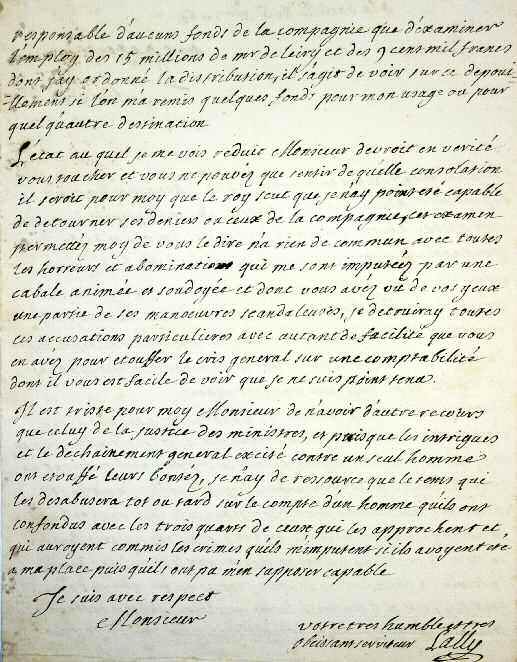 responsable d'aucuns fonds de la compagnie que d'examiner
l'employ des 15 millions de mr de leiry et des 9 cent mil francs
dont j'ay ordonné la distribution, il s'agit de voir sur ce depouil
-llement si l'on m'a remis quelques fonds pour mon usage ou pour
quelqu'autre destination
L'état auquel je me vois réduit Monsieur devroit en verité
vous toucher et vous ne pouvez que sentir de quelle consolation
il seroit pour moy que le roy scut que je n'ay point eté capable
de detourner ses deniers ou ceux de la compagnie, cet examen
permettez moy de vous le dire n'a rien de commun avec toutes
les horreurs et abominations qui me sont imputées par une
cabale animée et soudoyée et donc vous avez vu de vos yeux
une partie de ses manoeuvres scandaleuses, je detruiray toutes
ces accusations particulieres avec autant de facilité que vous
en avez pour etouffer le cris general sur une comptabilité
dont il vous est facile de voir que je ne suis point tenu.
Il est triste pour moy Monsieur de n'avoir d'autre recours
que celuy de la justice des ministres, et puisque les intrigues
et le déchainement general excité contre un seul homme
ont etouffé leurs bontéz, je n'ay de ressource que le tems qui
les desabusera tot ou tard sur le compte d'un homme qu'ils ont
confondus avec les trois quarts de ceux qui les approchent et
qui auroyent commis les crimes qu'ils m'imputent si ils avoyent eté
a ma place puis qu'ils ont pa m'en supposer capable
Je suis avec respect
Monsieur
votre tres humble et tres
obeissant serviteur Lally